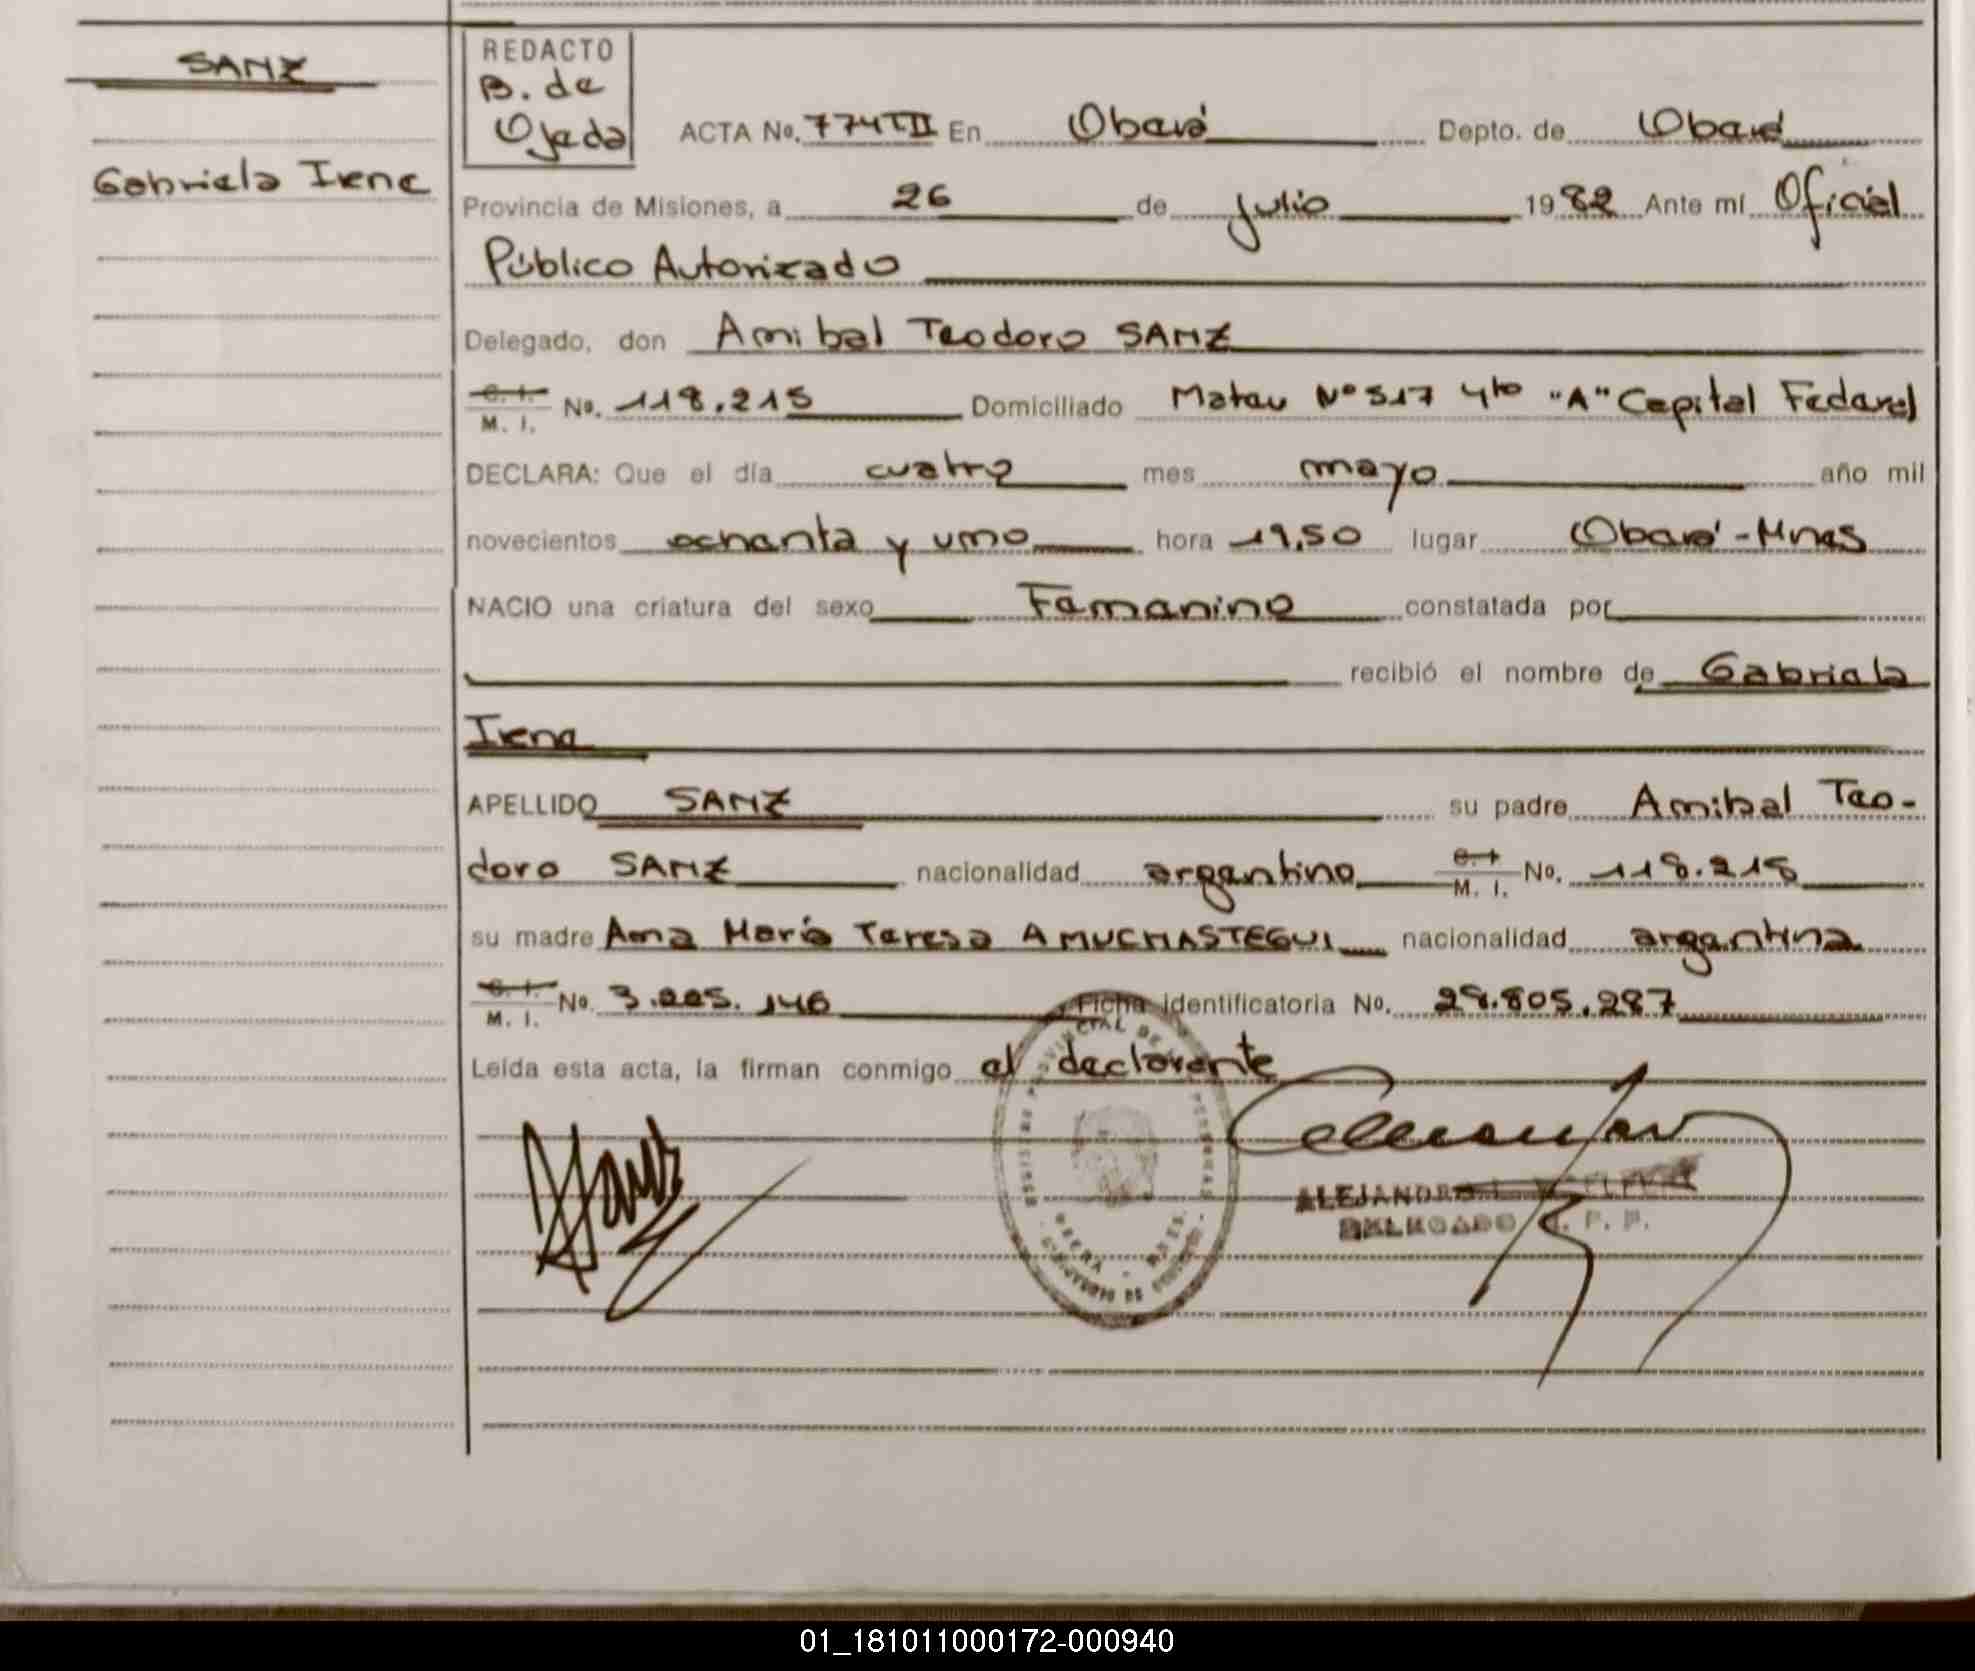 SANZ
Gabriela Irene
REDACTO
B. de
Ojeda
ACTA No. 774TII En Oberá Depto. de Oberá
Provincia de Misiones, a 26 de julio 1982 Ante mí Oficial
Público Autorizado
Delegado, don Anibal Teodoro SANZ
C. I.
M. I. No. 118.215 Domiciliado Mateu Nº 517 4to "A" Capital Federal
DECLARA: Que el día cuatro mes mayo año mil
novecientos ochenta y uno hora 19,50 lugar Oberá - Mnes
NACIO una criatura del sexo Femenino constatada por
recibió el nombre de Gabriela
Irene
APELLIDO SANZ su padre Anibal Teo-
doro SANZ nacionalidad argentino C. I. M. I. No. 118.215
su madre Ana María Teresa AMUCHASTEGUI nacionalidad argentina
C. I.
M. I. No. 3.225.146 Ficha identificatoria No. 28.805.287
Leída esta acta, la firman conmigo el declarente
ALEJANDRO
DELEGADO R. P. P.
OBERA - MNES.
01_181011000172-000940